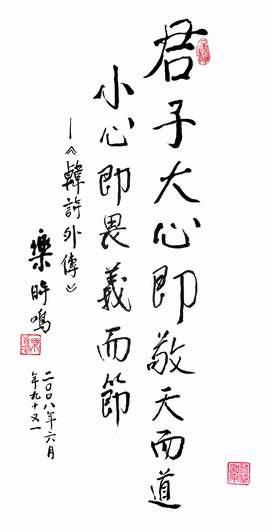 君子大心即敬天而道
小心即畏義而節
—《韓詩外傳》
樂時鳴
二〇〇八年六月
年九十又一